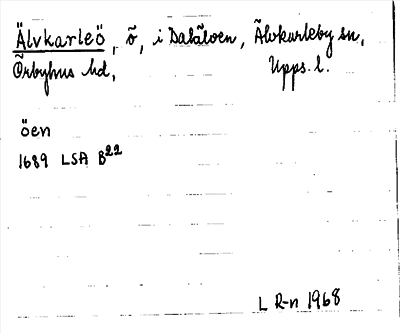 Älvkarleö, ö, i Dalälven, Älvkarleby sn,
Örbyhus hd, Upps. l.
öen
1689 LSA B22
L R-n 1968